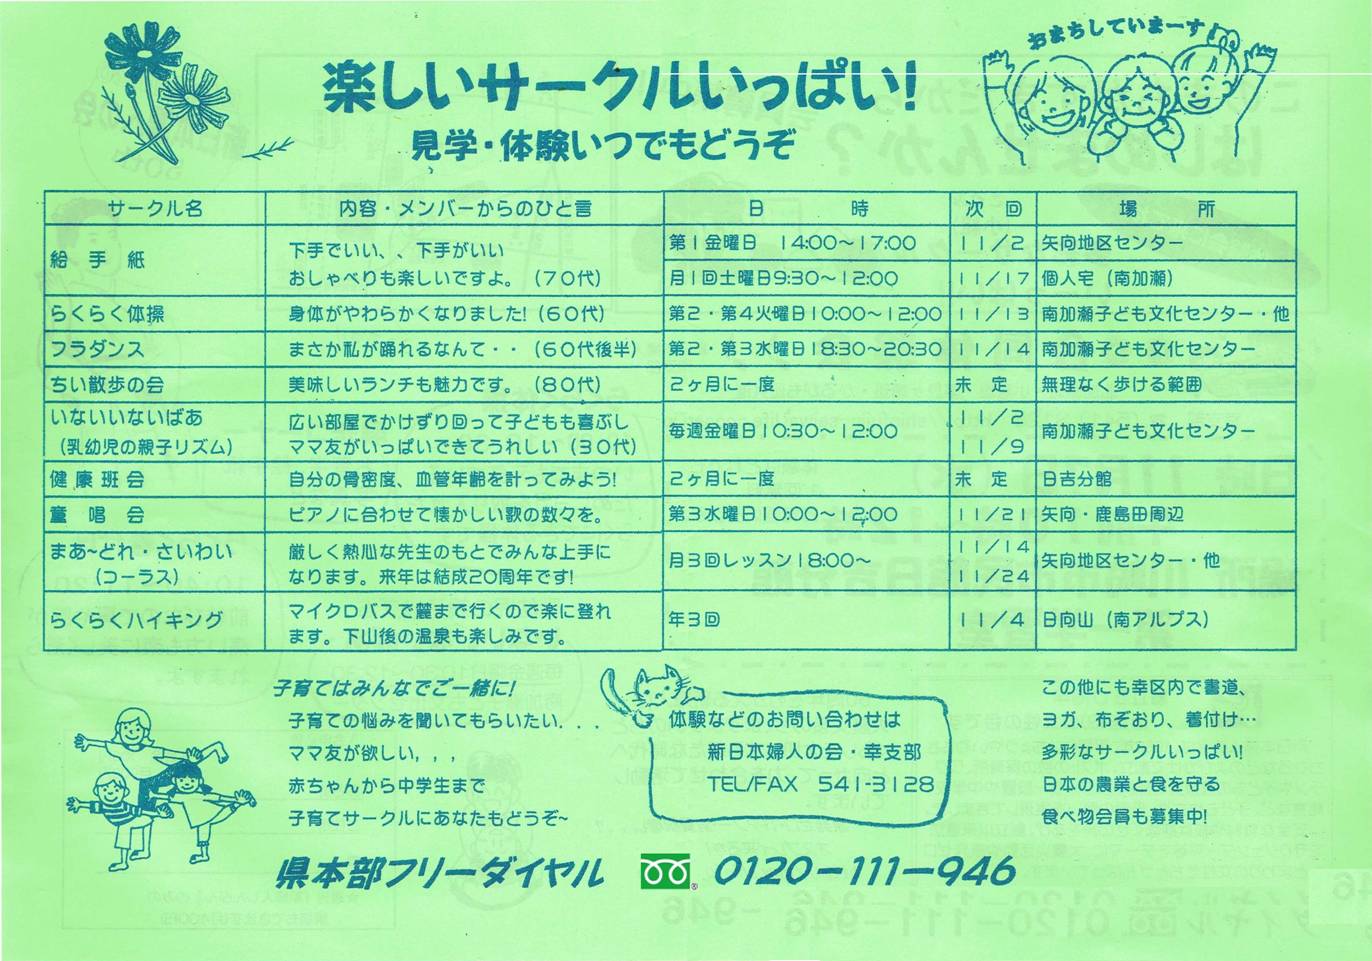 おまちしていまーす♪
楽しいサークルいっぱい!
見学・体験いつでもどうぞ
サークル名 内容・メンバーからのひと言 日 時 次 回 場 所
絵 手 紙 下手でいい、、下手がいい 第1金曜日 14:00〜17:00 11/2 矢向地区センター
おしゃべりも楽しいですよ。(70代) 月1回土曜日9:30〜12:00 11/17 個人宅(南加瀬)
らくらく体操 身体がやわらかくなりました!(60代) 第2・第4火曜日10:00〜12:00 11/13 南加瀬子ども文化センター・他
フラダンス まさか私が踊れるなんて・・(60代後半) 第2・第3水曜日18:30〜20:30 11/14 南加瀬子ども文化センター
ちい散歩の会 美味しいランチも魅力です。(80代) 2ヶ月に一度 未 定 無理なく歩ける範囲
いないいないばあ 広い部屋でかけずり回って子どもも喜ぶし 毎週金曜日10:30〜12:00 11/2 南加瀬子ども文化センター
(乳幼児の親子リズム) ママ友がいっぱいできてうれしい(30代) 11/9
健 康 班 会 自分の骨密度、血管年齢を計ってみよう! 2ヶ月に一度 未 定 日吉分館
童 唱 会 ピアノに合わせて懐かしい歌の数々を。 第3水曜日10:00〜12:00 11/21 矢向・鹿島田周辺
まあ~どれ・さいわい 厳しく熱心な先生のもとでみんな上手に 月3回レッスン18:00〜 11/14 矢向地区センター・他
(コーラス) なります。来年は結成20周年です! 11/24
らくらくハイキング マイクロバスで麓まで行くので楽に登れ 年3回 11/4 日向山(南アルプス)
ます。下山後の温泉も楽しみです。
子育てはみんなでご一緒に!
子育ての悩みを聞いてもらいたい...
ママ友が欲しい,,,
赤ちゃんから中学生まで
子育てサークルにあなたもどうぞ~
体験などのお問い合わせは
新日本婦人の会・幸支部
TEL/FAX 541-3128
この他にも幸区内で書道、
ヨガ、布ぞおり、着付け…
多彩なサークルいっぱい!
日本の農業と食を守る
食べ物会員も募集中!
県本部フリーダイヤル 0120-111-946